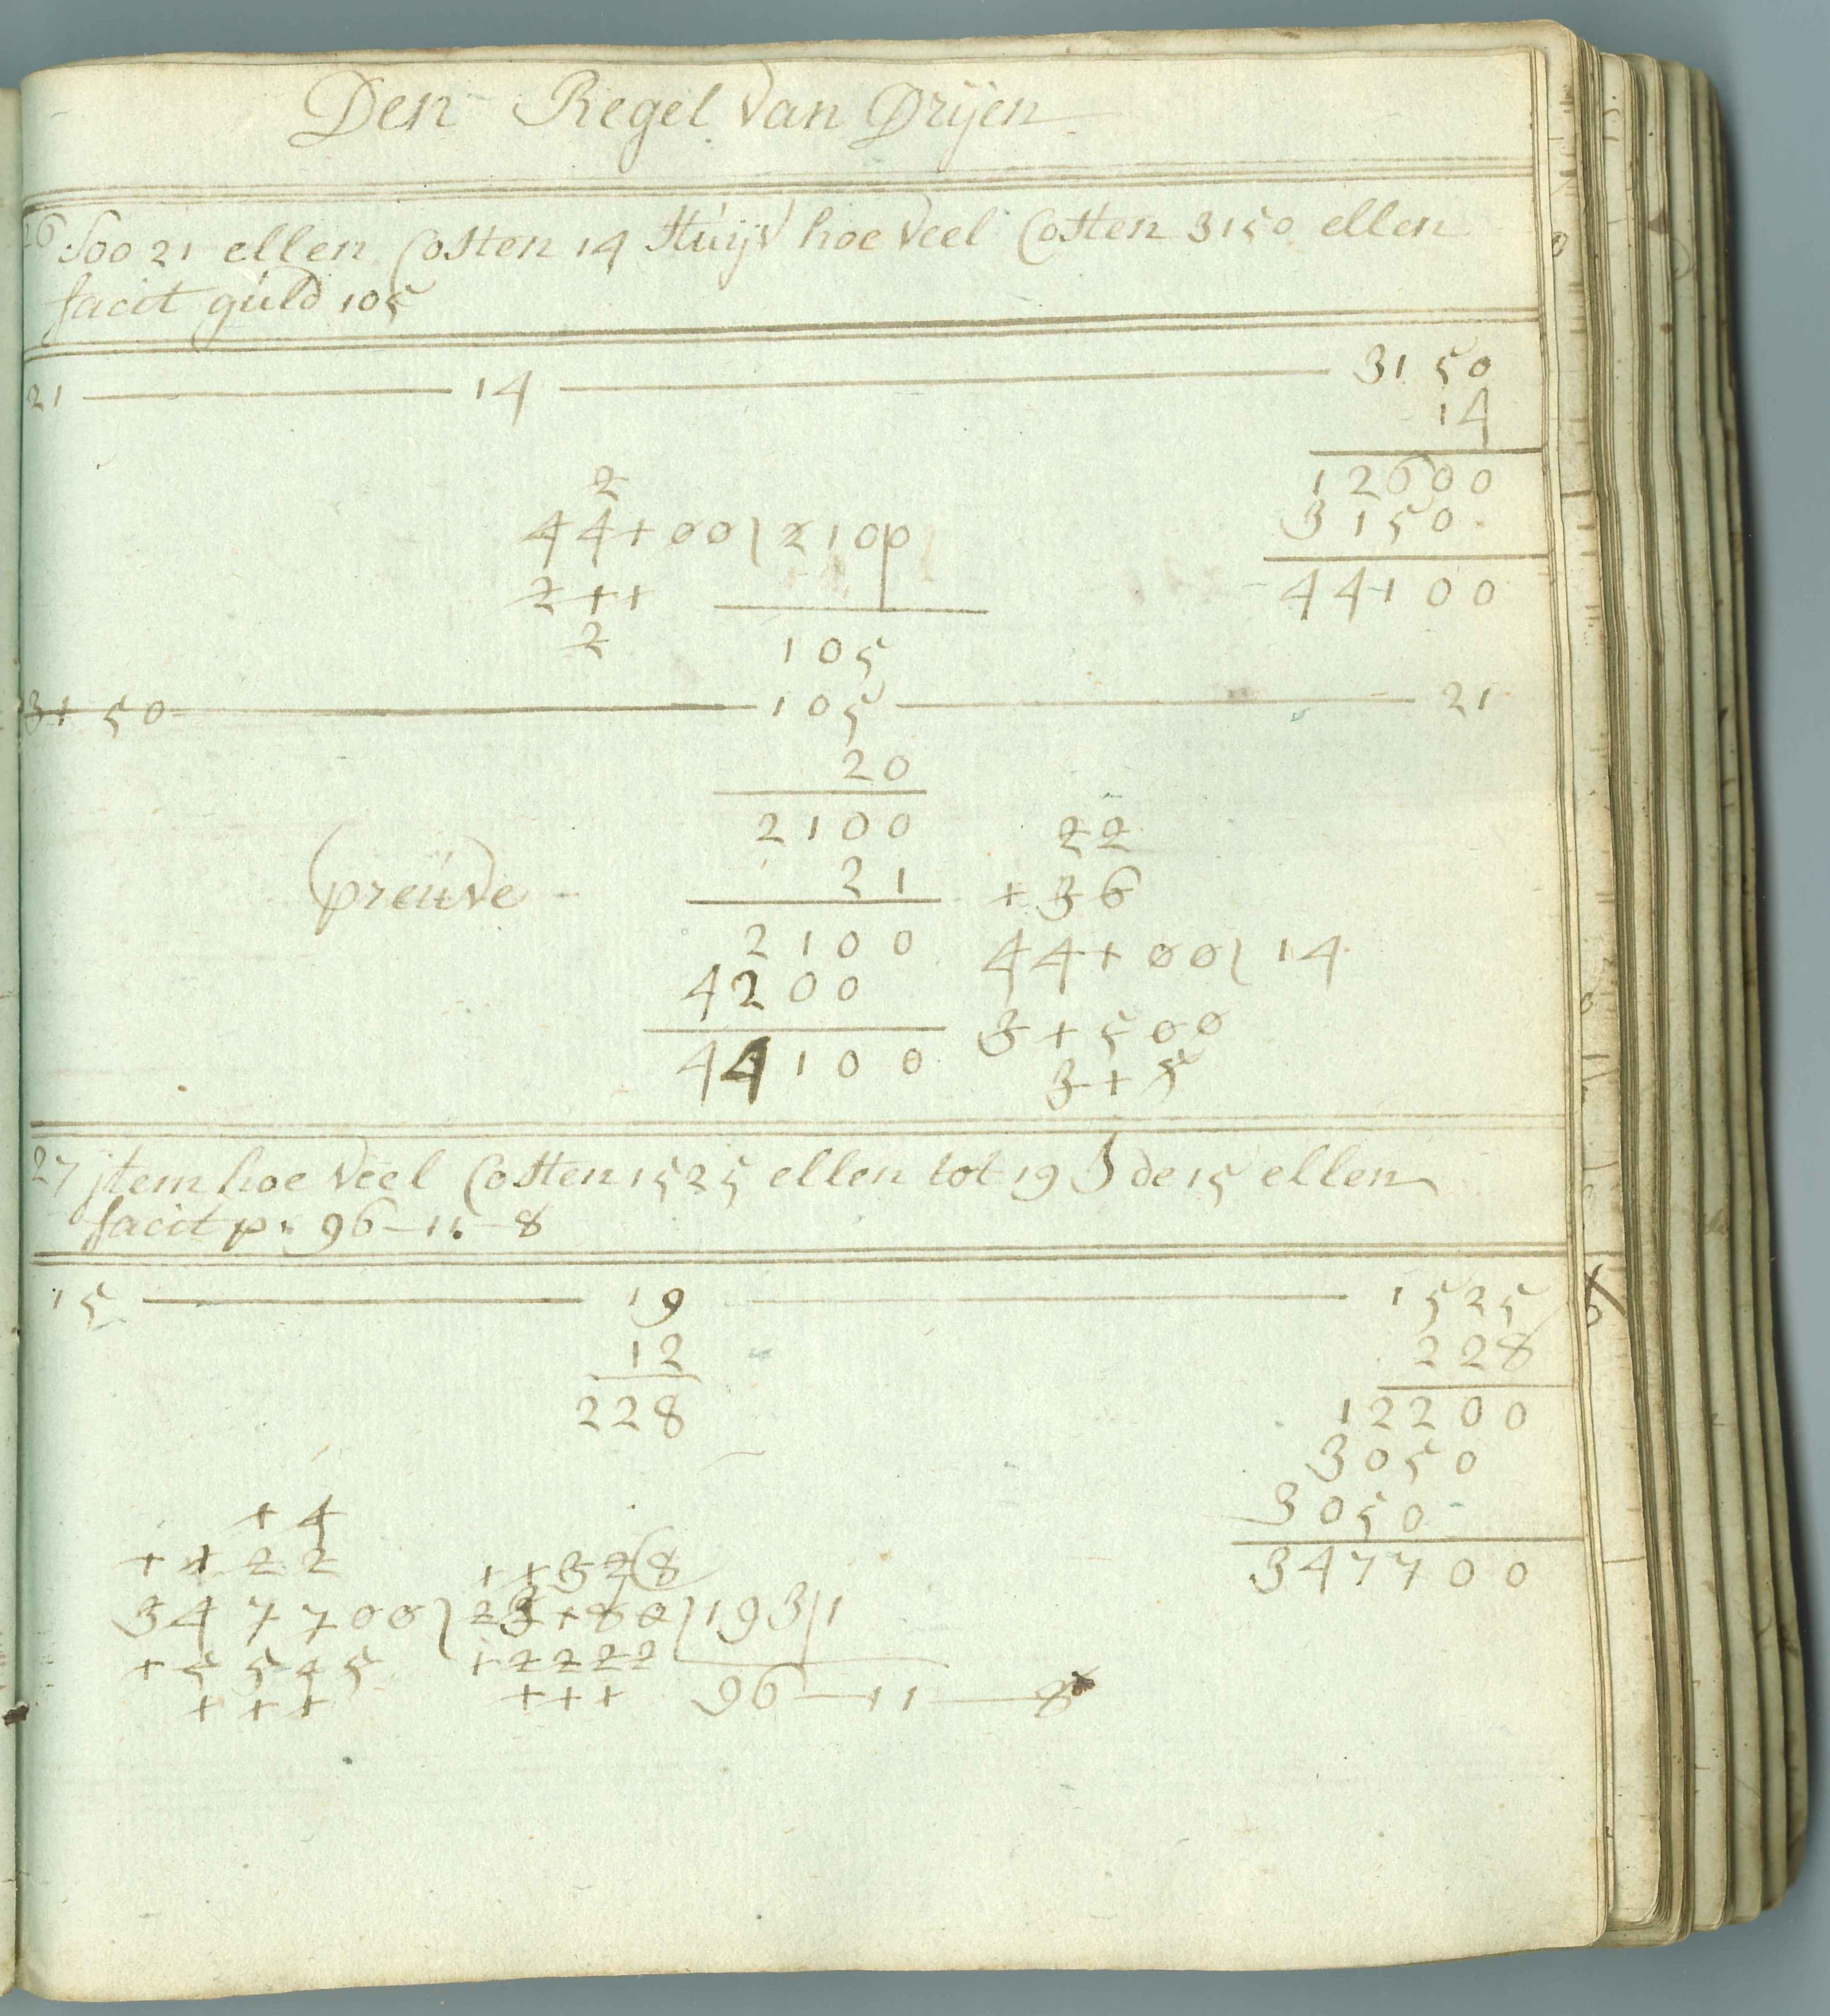 Den Regel Van Drijen
26 Soo 21 ellen Costen 14 Stuijv hoe Veel Costen 3150 ellen
facit guld 105
21 14 3150
14
2 12600
44100 2100 3150
211 44100
2 105
3150 105 21
20
2100 22
preuve 21 136
2100 44100 14
4200 31500
44100 315
27 jtem hoe Veel Costen 1525 ellen tot 19 ß de 15 ellen
facit p. 96-11-8
15 19 1525
12 228
228 12200
3050
14 3050
1122 11328 347700
347700 23180 1931
15545 12222
111 111 96 11 8